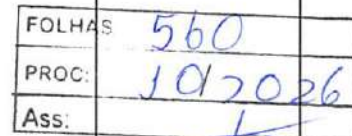 FOLHAS 560
PROC: 10/2026
Ass: